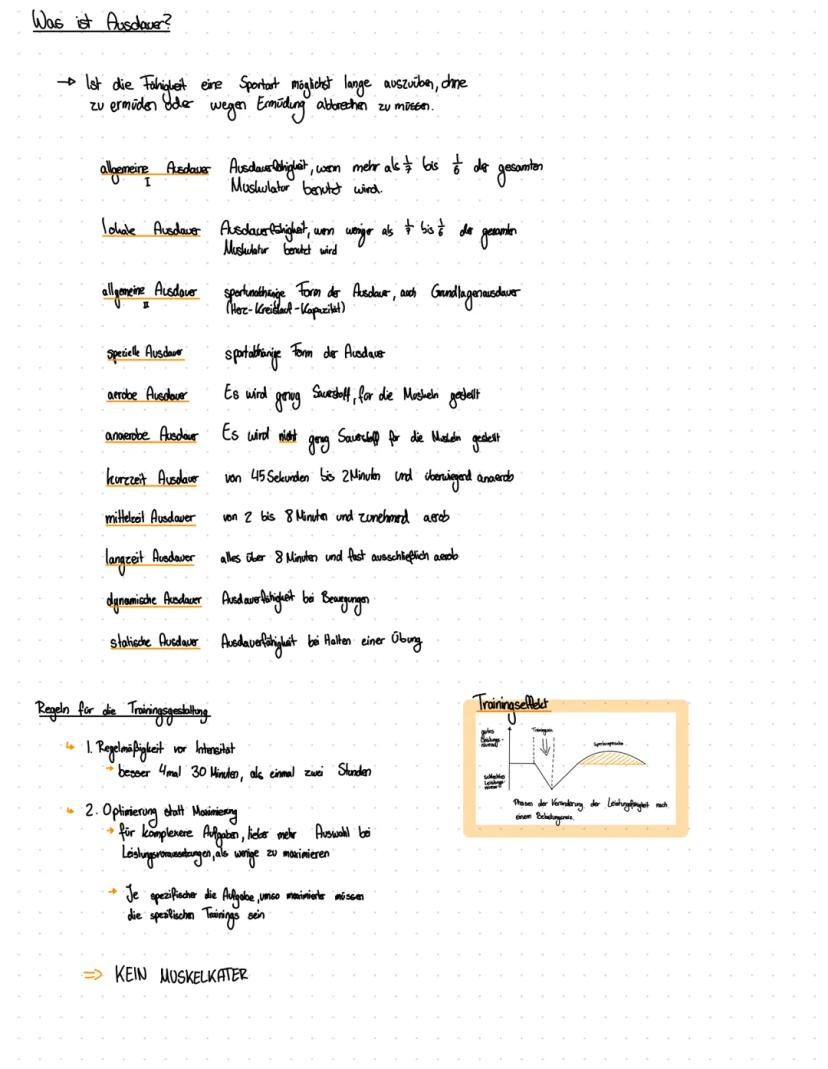 Was ist Ausdauer?
→ Ist die Fähigkeit eine Sportart möglichst lange auszuüben, ohne
zu ermüden oder wegen Ermüdung abbrechen zu müssen.
allgemeine Ausdauer I Ausdauerfähigkeit, wenn mehr als 1/7 bis 1/6 der gesamten
Muskulatur benutzt wird.
lokale Ausdauer Ausdauerfähigkeit, wenn weniger als 1/7 bis 1/6 der gesamten
Muskulatur benutzt wird
allgemeine Ausdauer II sportunabhänige Form der Ausdauer, auch Grundlagenausdauer
(Herz-Kreislauf-Kapazität)
spezielle Ausdauer sportabhänige Form der Ausdauer
aerobe Ausdauer Es wird genug Sauerstoff, für die Muskeln gestellt
anaerobe Ausdauer Es wird nicht genug Sauerstoff für die Muskeln gestellt
kurzzeit Ausdauer von 45 Sekunden bis 2 Minuten und überwiegend anaerob
mittelzeit Ausdauer von 2 bis 8 Minuten und zunehmend aerob
langzeit Ausdauer alles über 8 Minuten und fast ausschließlich aerob
dynamische Ausdauer Ausdauerfähigkeit bei Bewegungen
statische Ausdauer Ausdauerfähigkeit bei Halten einer Übung
Regeln für die Trainingsgestaltung
↳ 1. Regelmäßigkeit vor Intensität
→ besser 4mal 30 Minuten, als einmal zwei Stunden
↳ 2. Optimierung statt Maximierung
→ für komplexere Aufgaben, lieber mehr Auswahl bei
Leistungsvoraussetzungen, als wenige zu maximieren
→ Je spezifischer die Aufgabe, umso maximierte müssen
die spezifischen Trainings sein
⇒ KEIN MUSKELKATER
Trainingseffekt
gutes
Leistungs-
niveau
schlechtes
Leistungs-
niveau
Phasen der Veränderung der Leistungsfähigkeit nach
einem